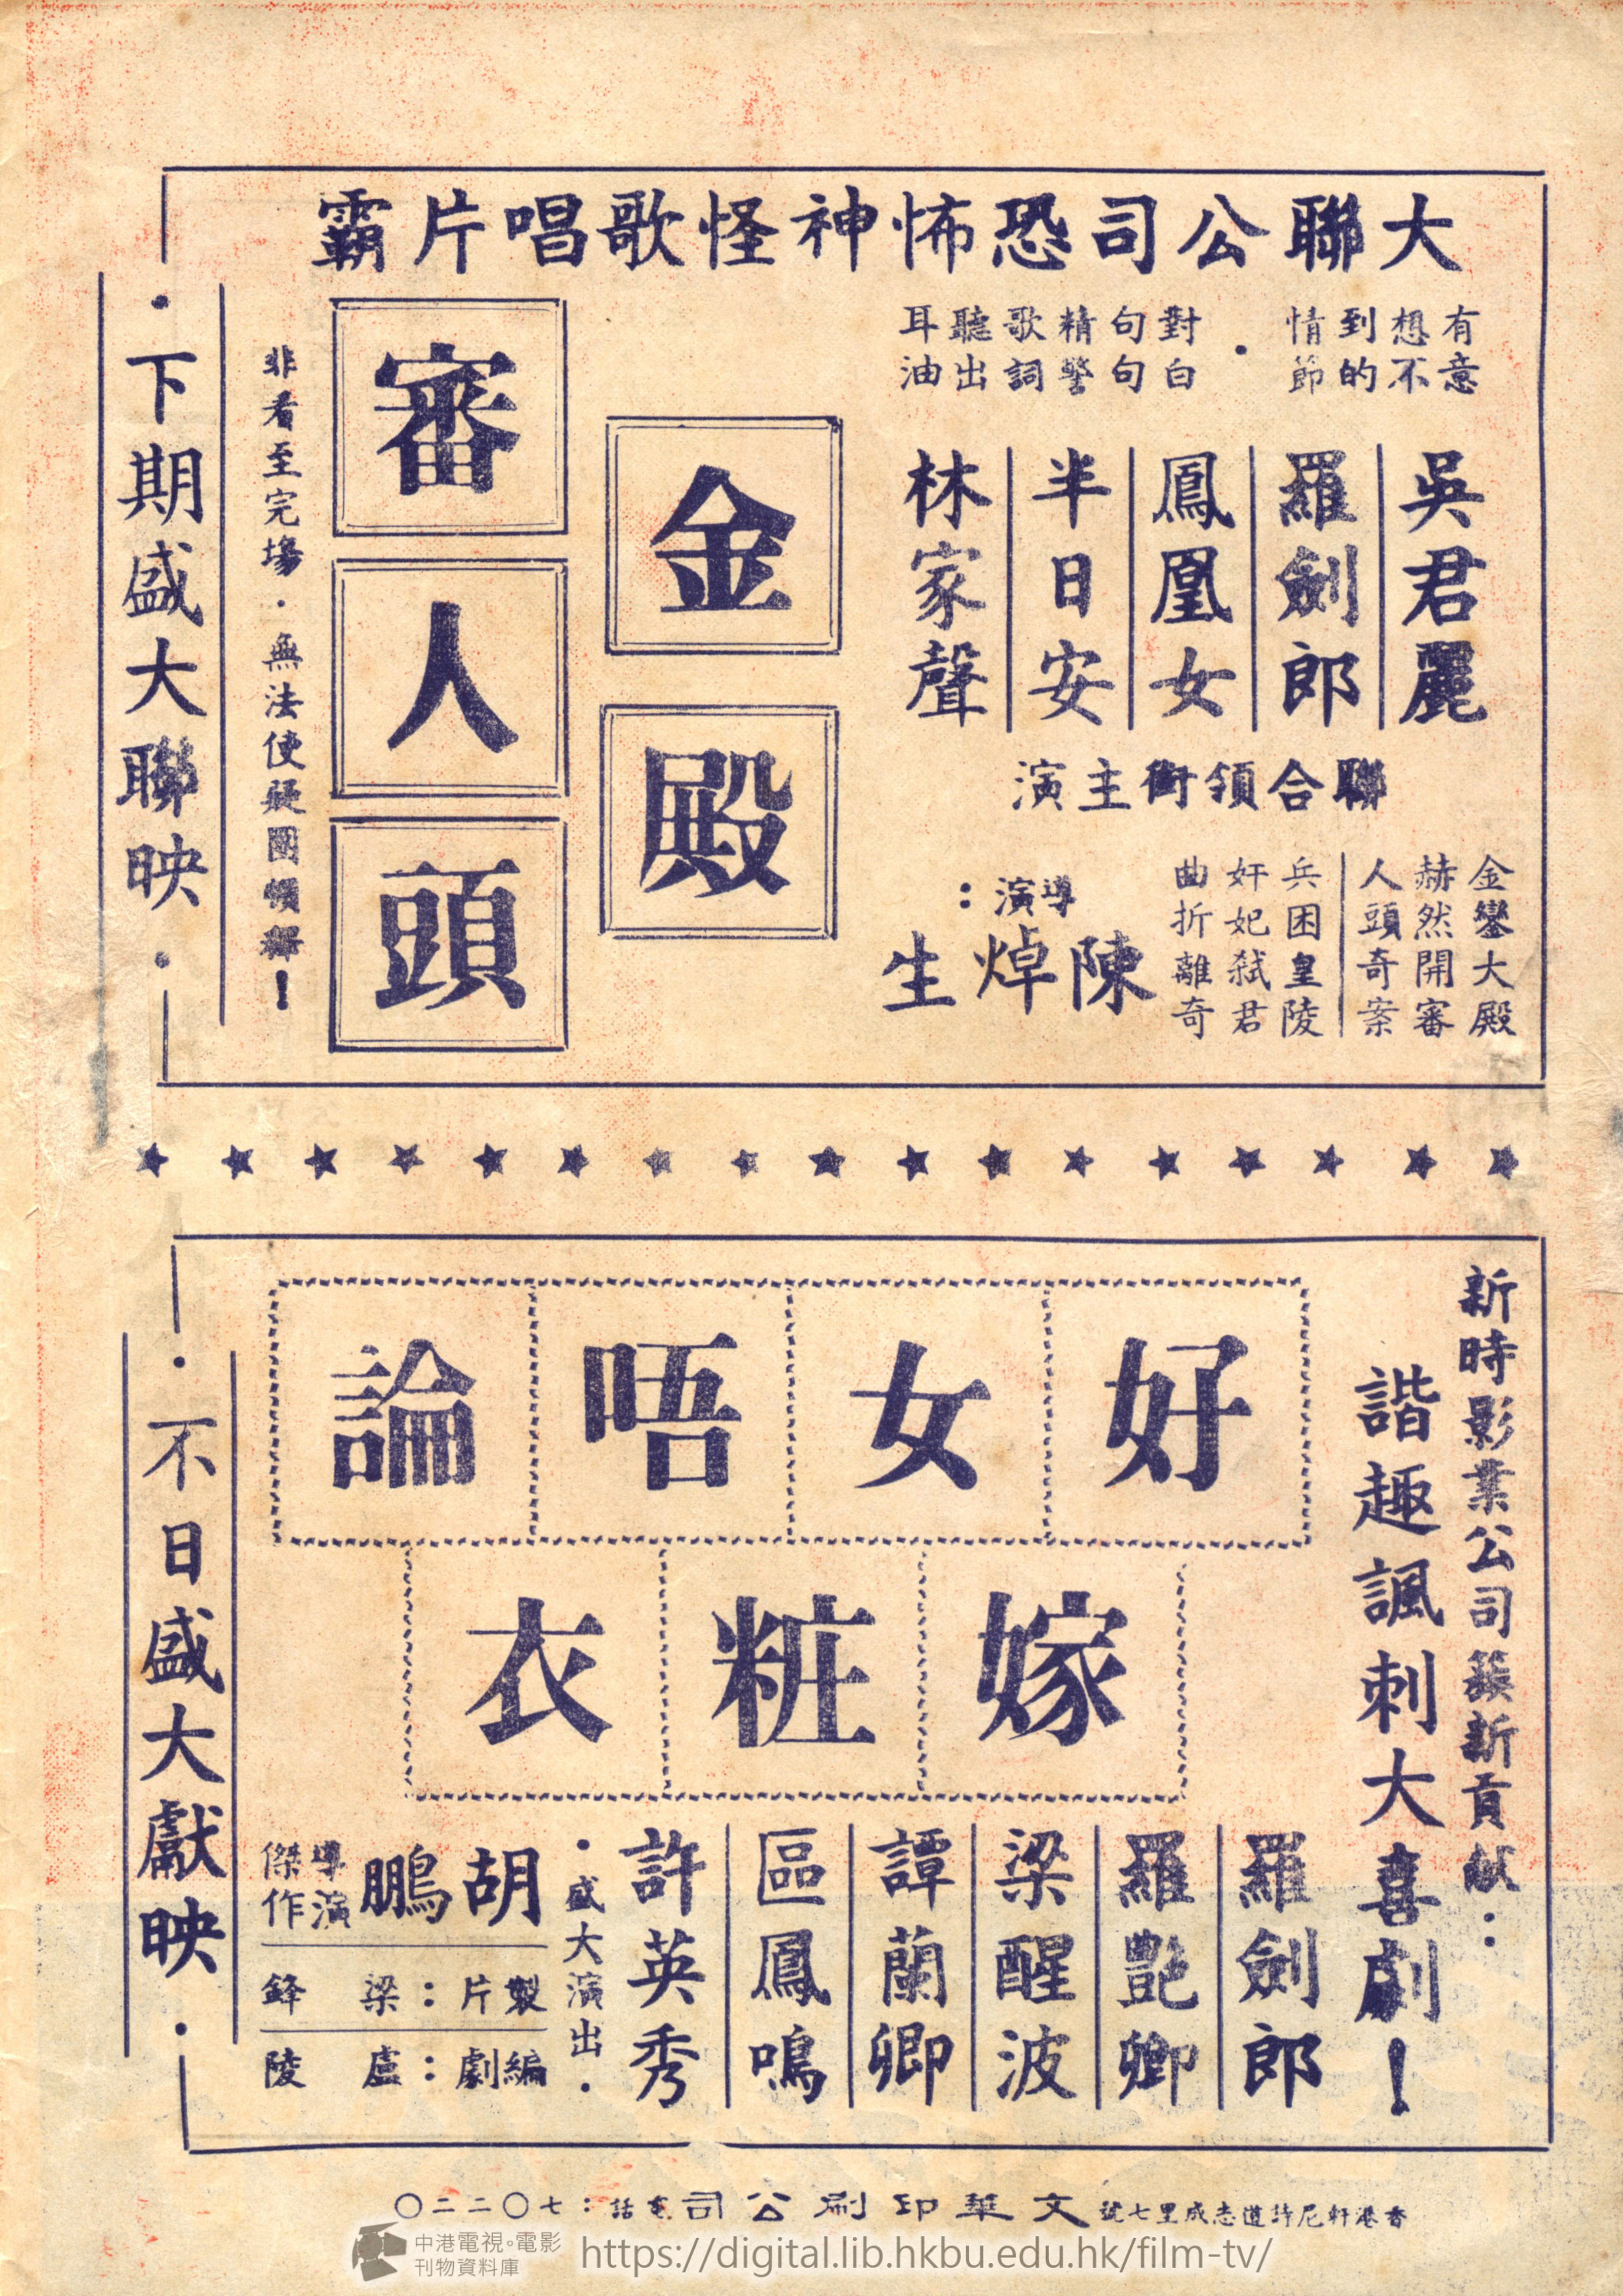 大聯公司恐怖神怪歌唱片霸
有意
想不
到的
情節
·
對白
句句
精警
歌詞
聽出
耳油
吳君麗
羅劍郎
鳳凰女
半日安
林家聲
聯合領銜主演
金鑾大殿
赫然開審
人頭奇案
兵困皇陵
奸妃弒君
曲折離奇
導演：
陳焯生
金殿
審人頭
非看至完場·無法使疑團領解！
·下期盛大聯映·
新時影業公司簇新貢献：
諧趣諷刺大喜劇！
好女唔論
嫁粧衣
羅劍郎
羅艷卿
梁醒波
譚蘭卿
區鳳鳴
許英秀
·盛大演出·
胡鵬
導演
傑作
製片：梁鋒
編劇：盧陵
·不日盛大獻映·
香港軒尼詩道志成里七號文華印刷公司電話：七〇二二〇
中港電視。電影
刊物資料庫
https://digital.lib.hkbu.edu.hk/film-tv/